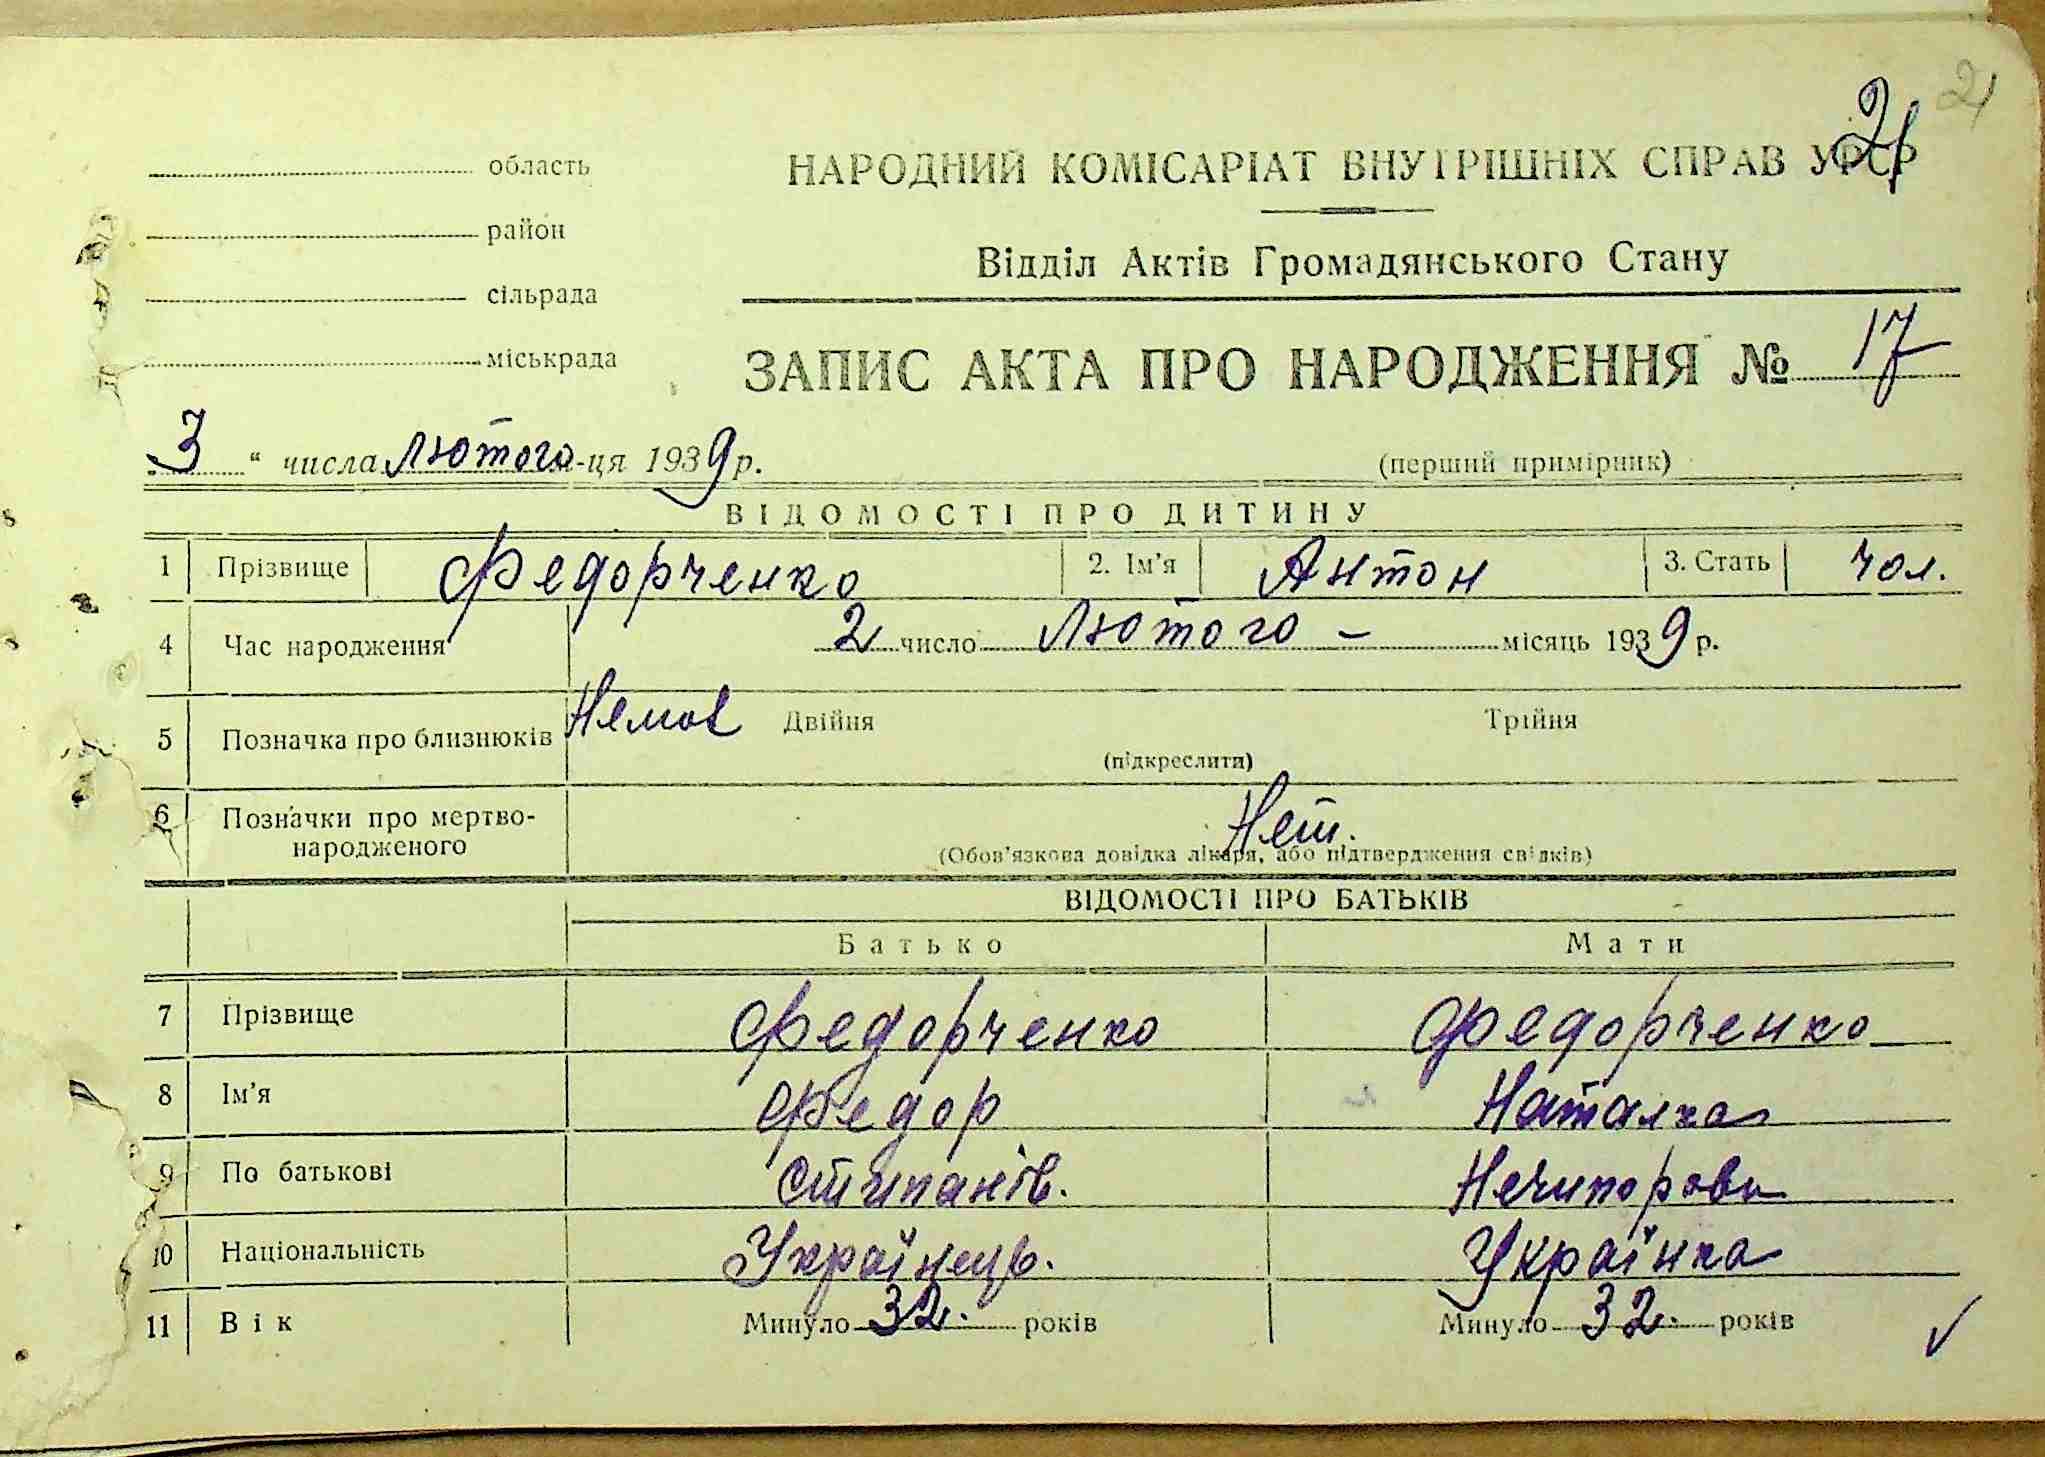 21
21
область
район
сільрада
міськрада
НАРОДНИЙ КОМІСАРІАТ ВНУТРІШНІХ СПРАВ УРСР
Відділ Актів Громадянського Стану
ЗАПИС АКТА ПРО НАРОДЖЕННЯ № 17
„3“ числа лютого м-ця 1939 р. (перший примірник)
ВІДОМОСТІ ПРО ДИТИНУ
1 Прізвище Федорченко 2. Ім’я Антон 3. Стать чол.
4 Час народження 2 число Лютого – місяць 1939 р.
5 Позначка про близнюків Немає Двійня Трійня
(підкреслити)
6 Позначки про мертво-
народженого Нет.
(Обов’язкова довідка лікаря, або підтвердження свідків)
ВІДОМОСТІ ПРО БАТЬКІВ
Батько Мати
7 Прізвище Федорченко Федорченко
8 Ім’я Федор Наталка
9 По батькові Стипанів. Нечипоровн
10 Національність Українець. Українка
11 Вік Минуло 32. років Минуло 32. років